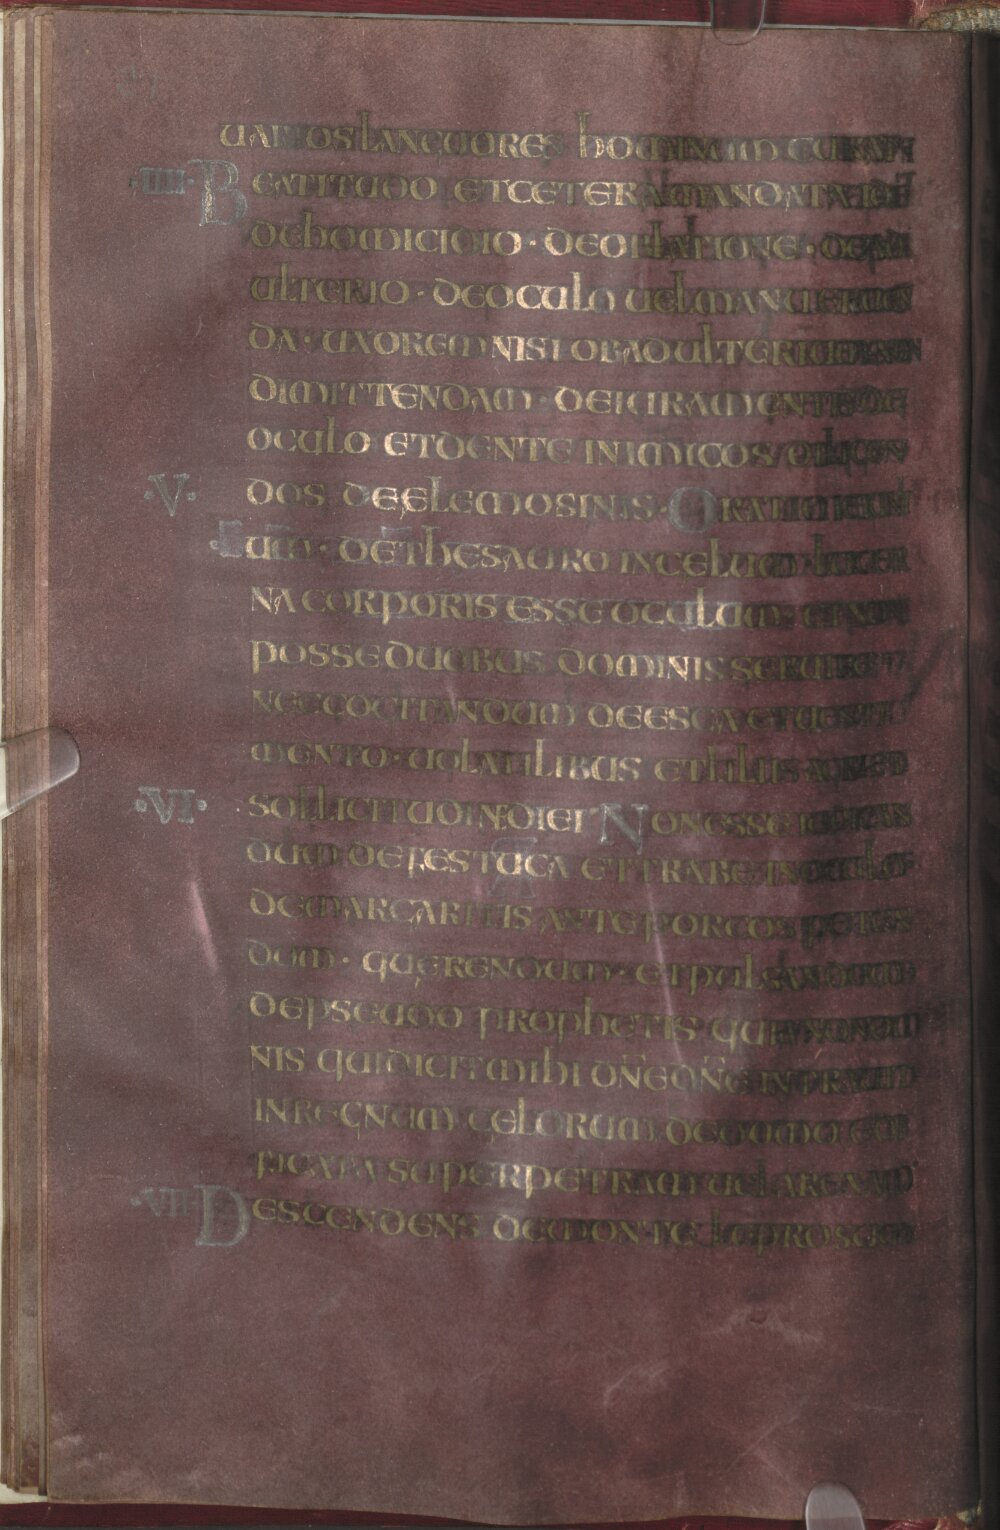 UARIOS LANGUORES hOMINUM CURAN
·IIII· BEATITUDO ET CETERA MANDATA
DE hOMICIDIO · DE OBLATIONE · DE AD
ULTERIO · DE OCULO UEL MANU ERUEN
DA · UXOREM NISI OB ADULTERIUM NON
DIMITTENDAM · DE IURAMENTIS DE
OCULO ET DENTE INIMICOS DILIGEN
·V· DOS DE ELEMOSINIS · ORATIO IEIUNI
UM · DE ThESAURO IN CELUM LUCER
NA CORPORIS ESSE OCULUM · ET NON
POSSE DUOBUS DOMINIS SERUIRE
NEC COGITANDUM DE ESCA ET UESTI
MENTO · UOLATILIBUS ET LILIIS
·VI· SOLLICITUDIN DIEI NON ESSE IUDICAN
DUM DE FESTUCA ET TRABE IN OCULO
DE MARGARITIS ANTE PORCOS PETEN
DUM · QUERENDUM · ET PULSANDUM
DE PSEUDO PROPhETIS QUIA NON OM
NIS QUI DICIT MIhI DÑE DÑE INTRABIT
IN REGNUM CELORUM DE DOMO EDI
FICATA SUPER PETRAM UEL ARENAM
·VII· DESCENDENS DE MONTE LEPROSUM